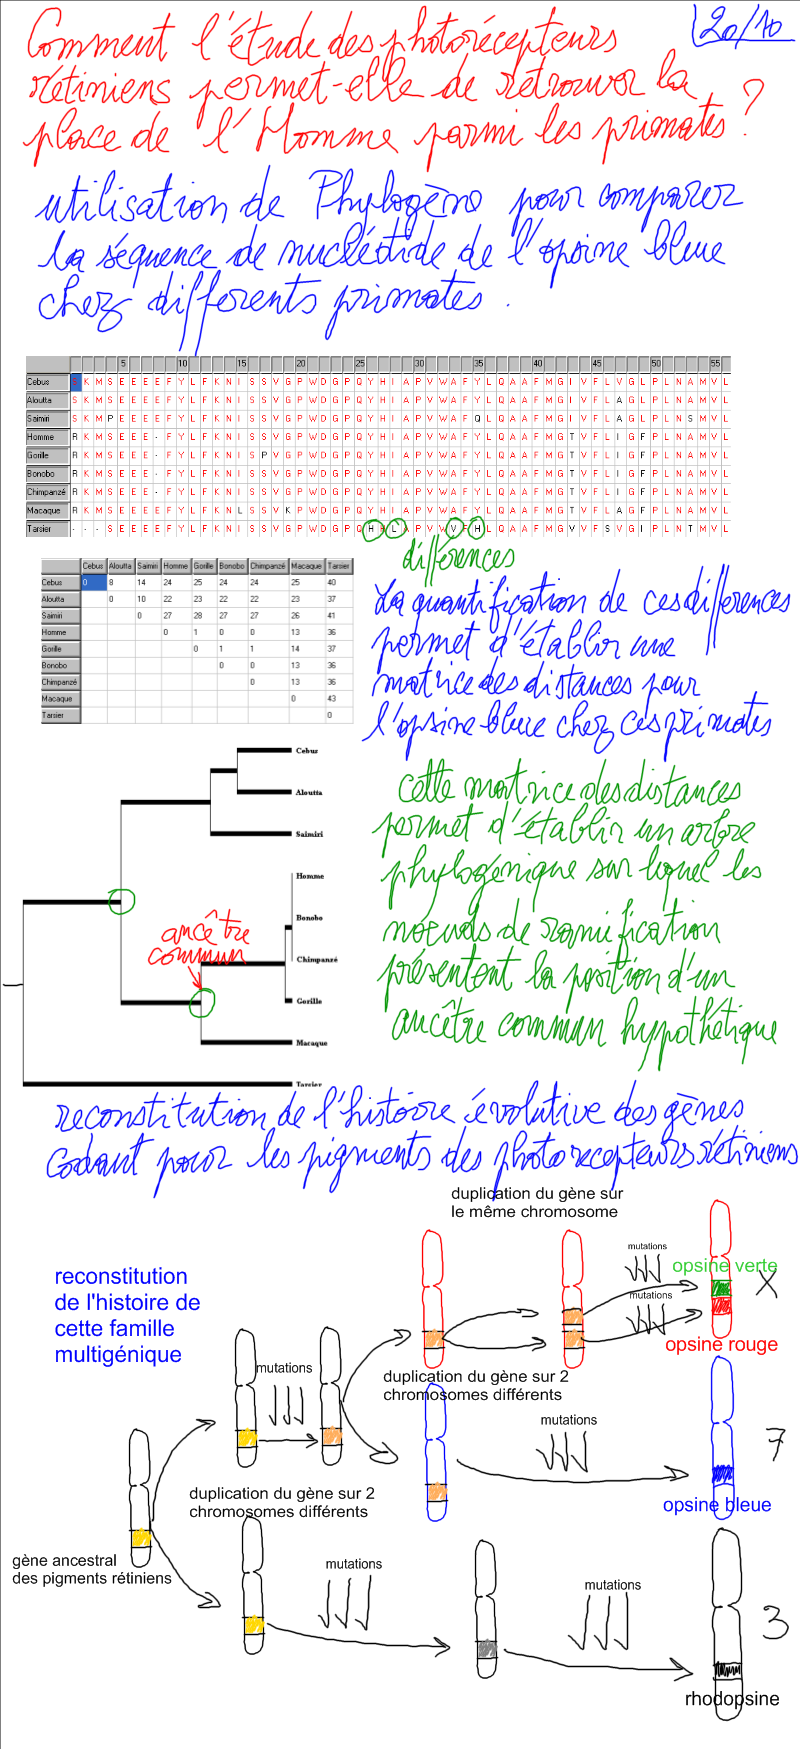 20/10
Comment l'étude des photorécepteurs
rétiniens permet-elle de retrouver la
place de l'Homme parmi les primates ?
utilisation de Phylogène pour comparer
la séquence de nucléotide de l'opsine bleue
chez differents primates .
5 10 15 20 25 30 35 40 45 50 55
Cebus S K M S E E E E F Y L F K N I S S V G P W D G P Q Y H I A P V W A F Y L Q A A F M G I V F L V G L P L N A M V L
Aloutta S K M S E E E E F Y L F K N I S S V G P W D G P Q Y H I A P V W A F Y L Q A A F M G I V F L A G L P L N A M V L
Saimiri S K M P E E E E F Y L F K N I S S V G P W D G P Q Y H I A P V W A F Q L Q A A F M G I V F L A G L P L N S M V L
Homme R K M S E E E - F Y L F K N I S S V G P W D G P Q Y H I A P V W A F Y L Q A A F M G T V F L I G F P L N A M V L
Gorille R K M S E E E - F Y L F K N I S P V G P W D G P Q Y H I A P V W A F Y L Q A A F M G T V F L I G F P L N A M V L
Bonobo R K M S E E E - F Y L F K N I S S V G P W D G P Q Y H I A P V W A F Y L Q A A F M G T V F L I G F P L N A M V L
Chimpanzé R K M S E E E - F Y L F K N I S S V G P W D G P Q Y H I A P V W A F Y L Q A A F M G T V F L I G F P L N A M V L
Macaque R K M S E E E E F Y L F K N L S S V K P W D G P Q Y H I A P V W A F Y L Q A A F M G T V F L A G F P L N A M V L
Tarsier - - - S E E E E F Y L F K N I S S V G P W D G P Q H H L A P V W V F H L Q A A F M G V V F S V G I P L N T M V L
différences
Cebus Aloutta Saimiri Homme Gorille Bonobo Chimpanzé Macaque Tarsier
Cebus 0 8 14 24 25 24 24 25 40
Aloutta 0 10 22 23 22 22 23 37
Saimiri 0 27 28 27 27 26 41
Homme 0 1 0 0 13 36
Gorille 0 1 1 14 37
Bonobo 0 0 13 36
Chimpanzé 0 13 36
Macaque 0 43
Tarsier 0
La quantification de ces differences
permet d'établir une
matrice des distances pour
l'opsine bleue chez ces primates
Cebus
Aloutta
Saimiri
Homme
Bonobo
Chimpanzé
Gorille
Macaque
Tarsier
ancêtre
commun
cette matrice des distances
permet d'établir un arbre
phylogénique sur lequel les
noeuds de ramification
présentent la position d'un
ancêtre commun hypothétique
reconstitution de l'histoire évolutive des gènes
codant pour les pigments des photorecepteurs rétiniens
duplication du gène sur
le même chromosome
reconstitution
de l'histoire de
cette famille
multigénique
mutations
opsine verte
X
mutations
opsine rouge
mutations
duplication du gène sur 2
chromosomes différents
mutations
7
opsine bleue
duplication du gène sur 2
chromosomes différents
gène ancestral
des pigments rétiniens
mutations
mutations
3
rhodopsine